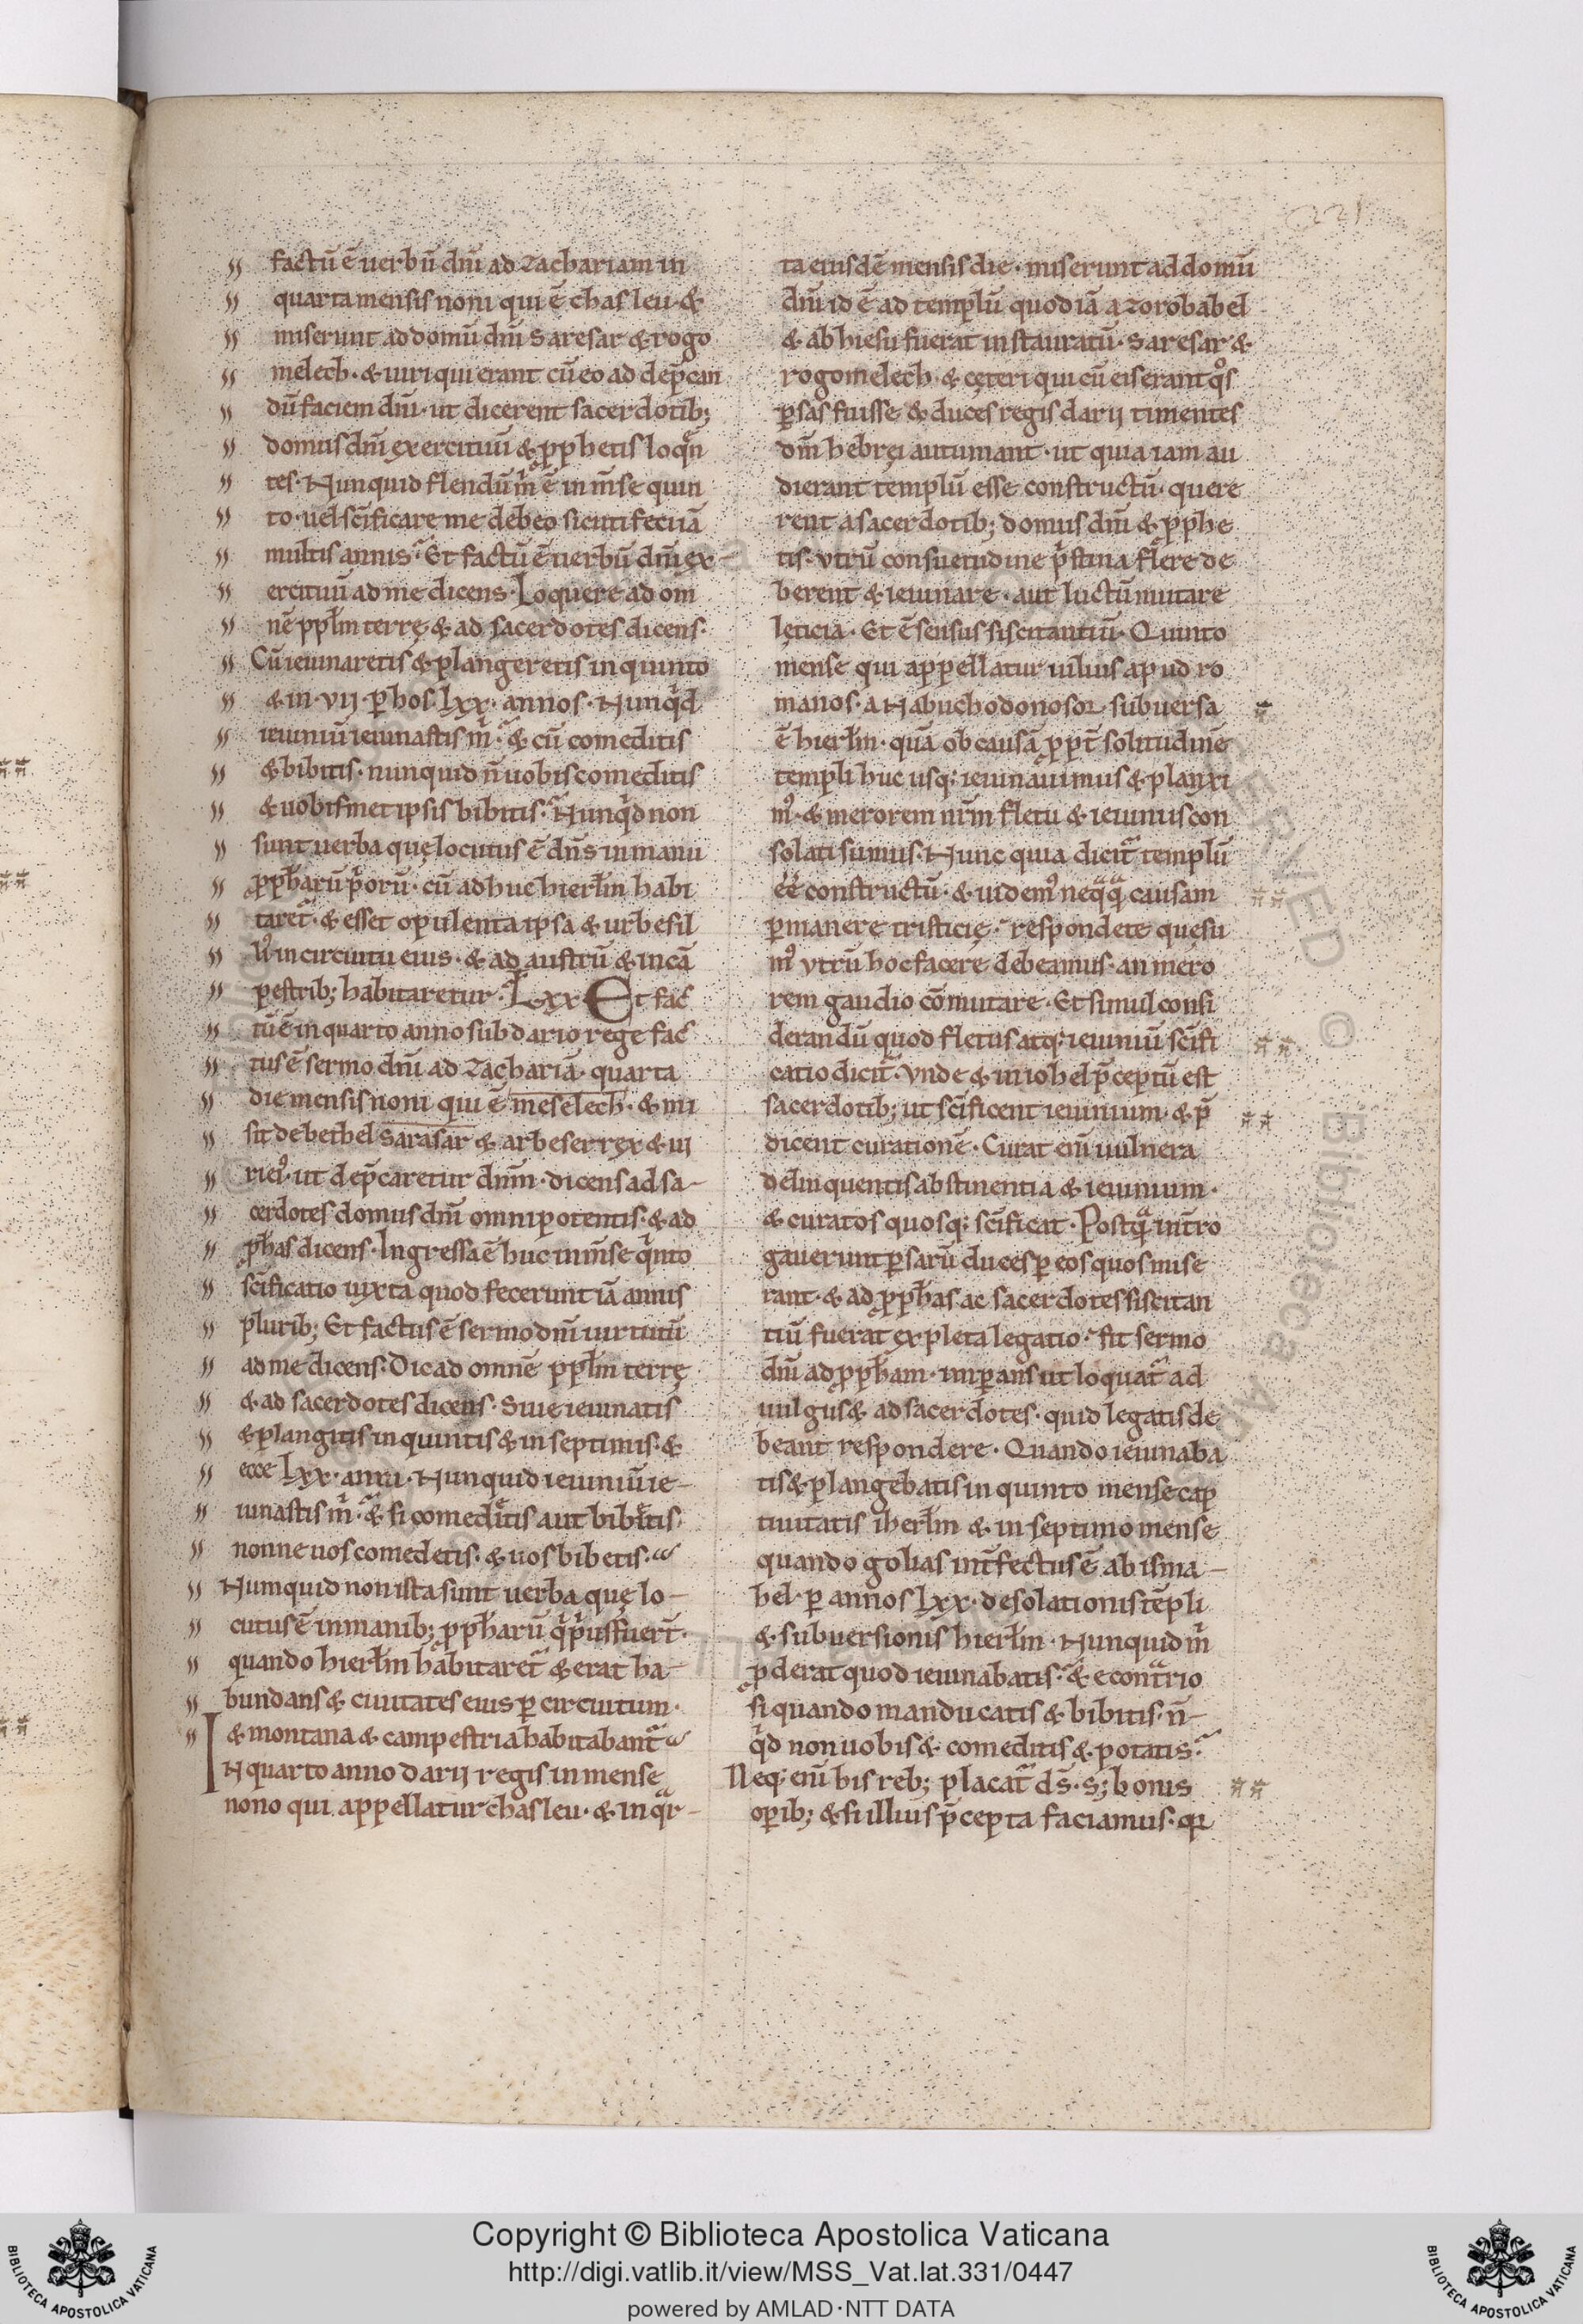 221
factū ē uerbū dn̄i ad Zachariam in
quarta mensis noni qui ē chasleu · &
miserunt ad domū dn̄i saresar & rogo
melech · & uiri qui erant cū eo ad dep̄can
dū faciem dn̄i · ut dicerent sacerdotib;
domus dn̄i exercituū & pphetis loqn̄
tes · Nunquid flendū m̄ ē in m̄se quin
to · uel sc̄ificare me debeo sicuti feci iā
multis annis · Et factū ē uerbū dn̄i ex
ercituū ad me dicens · Loquere ad om
nē ppl̄m terrę & ad sacerdotes dicens ·
Cū ieiunaretis & plangeretis in quinto
& in · vij · p hos · lxx · annos · Nunqd
ieiuniū ieiunastis m · & cū comeditis
& bibitis · nunquid n̄ uobis comeditis
& uobismet ipsis bibitis · Nunqd non
sunt uerba quę locutus ē dn̄s in manu
pph̄arū p̄orū · cū adhuc hierl̄m habi
taret̄ · & esset opulenta ipsa & urbes il
lꝰ in circuitu eius · & ad austrū & in cā
pestrib; habitaretur · Lxx Et fac̄
tū ē in quarto anno sub dario rege fac̄
tus ē sermo dn̄i ad Zachariā · quarta
die mensis noni qui ē meselech · & mi
sit de bethel sarasar & arbeser rex & ui
rieiꝰ · ut dep̄caretur dn̄m · dicens ad sa-
cerdotes domus dn̄i omnipotentis · & ad
ph̄as dicens · Ingressa ē huc in m̄se qnto
sc̄ificatio iuxta quod fecerunt iā annis
plurib; Et factus ē sermo dn̄i uirtutū
ad me dicens · Dic ad omnē ppl̄m terrę
& ad sacerdotes dicens · Si ieiunatis
& plangitis in quintis & in septimis · &
ecce Lxx · anni · Nunquid ieiuniū ie-
iunastis m · & si comeditis aut bibitis
nonne uos comedetis · & uos bibetis ·
Numquid non ista sunt uerba quę lo-
cutus ē in manib; pph̄arū q pus fuer̄t ·
quando hierl̄m habitaret̄ & erat ha-
bundans & ciuitates eius p circuitum ·
& montana & campestria habitabant̄
IN quarto anno darij regis in mense
nono qui appellatur chasleu · & in qr-
ta eiusdē mensis die · miserunt ad domū
dn̄i id ē ad templū quod iā a zorobabel
& ab hiesu fuerat instauratū · saresar &
rogomelech · & cęteri qui cū eis erant qs
psas fuisse & duces regis darij timentes
dm̄ hebręi autumant · ut quia iam au
dierant templū esse constructū · quere
rent a sacerdotib; domus dn̄i & pphe
tis · vtrū consuetudine p̄stina flere de
berent & ieiunare · aut luctū mutare
lęticia · Et ē sensus siscitantiū · Quinto
mense qui appellatur iulius apud ro
manos · a Nabuchodonosor subuersa
ē hierl̄m · quā ob causā ppt̄ solitudinē
templi huc usq; ieiunauimus & planxi
mꝰ · & merorem nr̄m fletu & ieiuniis con
solati sumus · Nunc quia dicit̄ templū
ēē constructū · & uidemꝰ neqq causam
pmanere tristicię · respondete quęsu
mꝰ vtrū hoc facere debeamus · an mero
rem gaudio cōmutare · Et simul consi
derandū quod fletus atq; ieiuniū sc̄ifi
catio dicit̄ · Vnde & in iohel p̄ceptū est
sacerdotib; ut sc̄ificent ieiunium · & p̄
dicent curationē · Curat eni̅ uulnera
delinquentis abstinentia & ieiunium ·
& curatos quosq; sc̄ificat · Postq int̄ro
gauerunt psarū duces p eos quos mise
rant · & ad pph̄as ac sacerdotes siscitan
tiū fuerat expleta legatio · fit sermo
dn̄i ad pph̄am · impans ut loquat̄ ad
uulgus & ad sacerdotes · quid legatis de
beant respondere · Quando ieiunaba
tis & plangebatis in quinto mense cap
tiuitatis iherl̄m & in septimo mense
quando golias int̄fectus ē ab isma-
hel · p annos lxx · desolationis tēpli
& subuersionis hierl̄m · Nunquid m
pderat quod ieiunabatis · & econtrio
si quando manducatis & bibitis · n̄-
qd non uobis & comeditis & potatis ·
Neq; eni̅ his reb; placat̄ ds̄ · s; bonis
opib; & si illius p̄cepta faciamus · qr
Copyright © Biblioteca Apostolica Vaticana
http://digi.vatlib.it/view/MSS_Vat.lat.331/0447
powered by AMLAD·NTT DATA
BIBLIOTECA APOSTOLICA VATICANA
BIBLIOTECA APOSTOLICA VATICANA